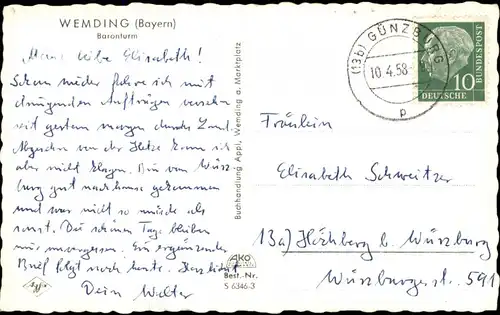 WEMDING (Bayern)
Baronturm
liebe Elisabeth!
Schon wieder fahre ich mit
dringenden Aufträgen versehen
seit gestern morgen durchs Land.
Abgesehen von der Hetze kann ich
aber nicht klagen. Bin von Würz-
burg gut nachhause gekommen
und war nicht so müde als
sonst. Die schönen Tage bleiben
mir unvergessen. Ein ergänzender
Brief folgt noch heute. Herzlichst
Dein Walter
Buchhandlung Appl, Wemding a. Marktplatz
AKO
Best.-Nr.
S 6346-3
(13b) GÜNZBURG
10.4.58
p
10
DEUTSCHE
BUNDESPOST
Fräulein
Elisabeth Schweitzer
13a) Höchberg bei Würzburg
Würzburgerst. 591